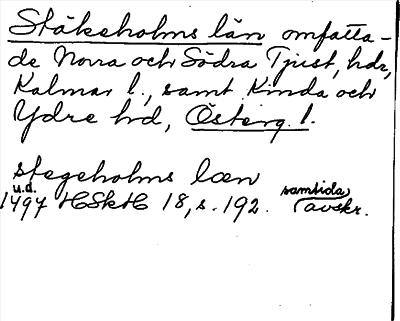 Stäkeholms län omfatta-
de Norra och Södra Tjust, hdr,
Kalmar l., samt Kinda och
Ydre hd, Österg. l.
stegeholms læn
u.d. samtida
1497 HSkH 18, s. 192. avskr.